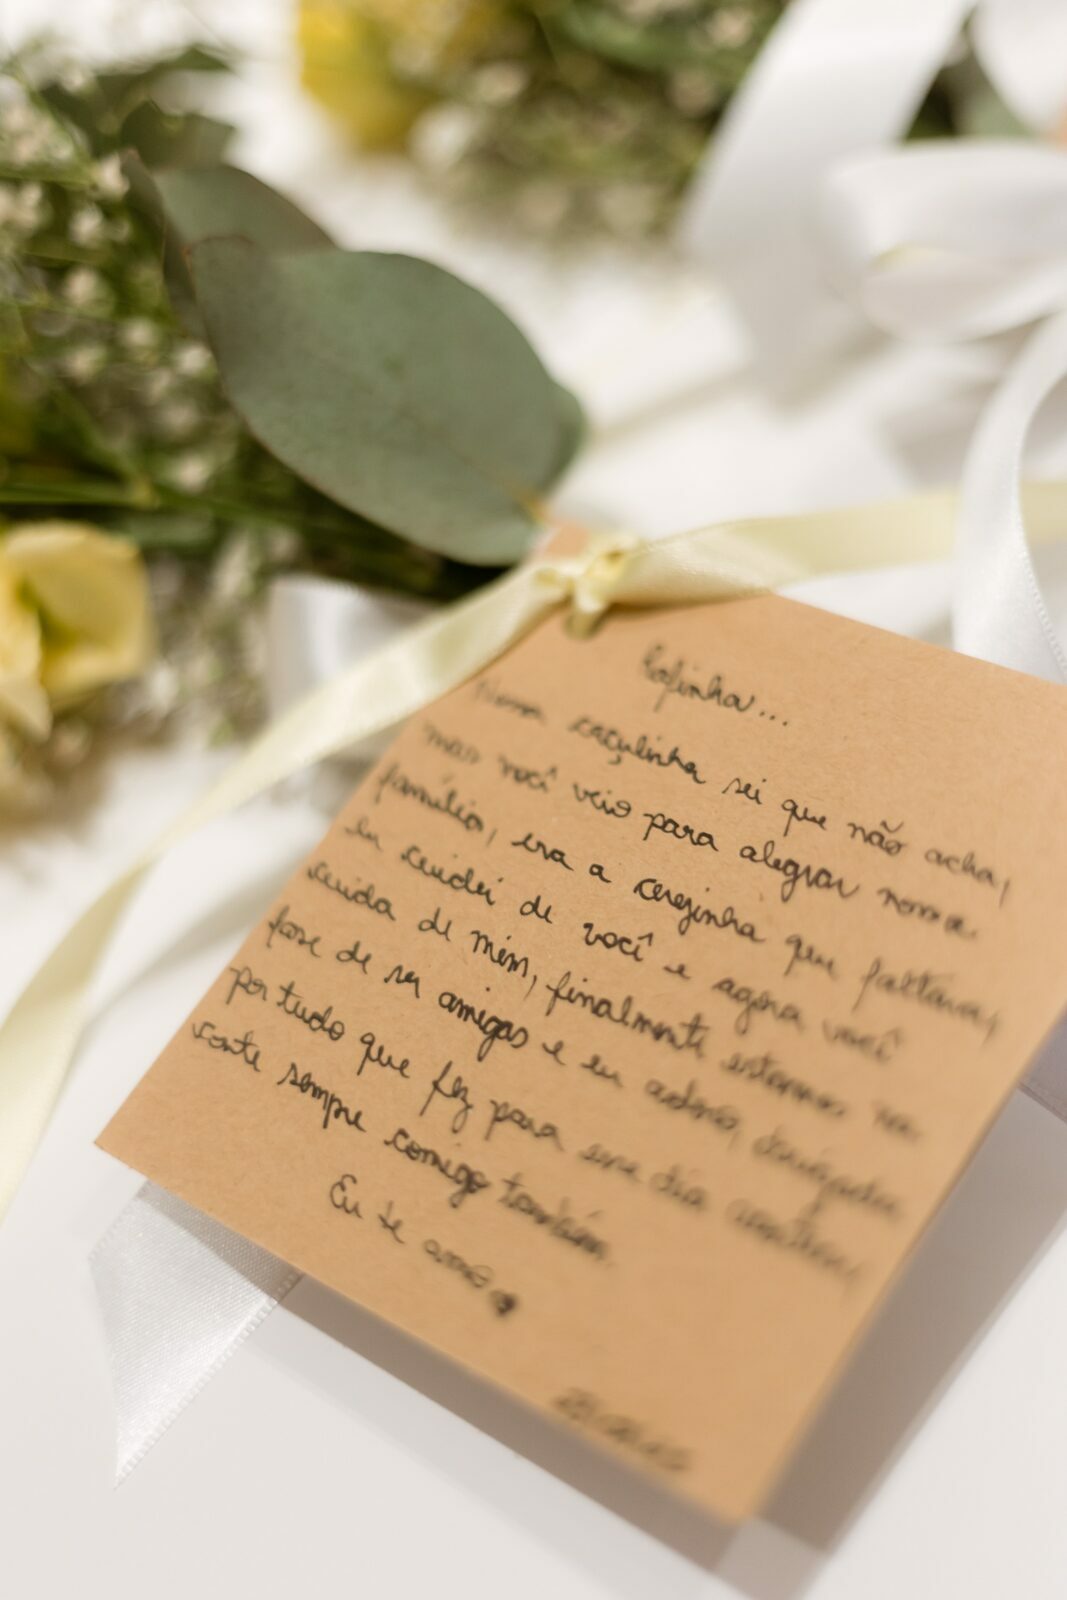 Nossa caçulinha sei que não acha,
mas você veio para alegrar nossa
família, era a cerejinha que faltava,
eu cuidei de você e agora você
cuida de mim, finalmente estamos na
fase de ser amigas e eu adoro, obrigada
por tudo que fez para esse dia
conte sempre comigo também.
Eu te amo